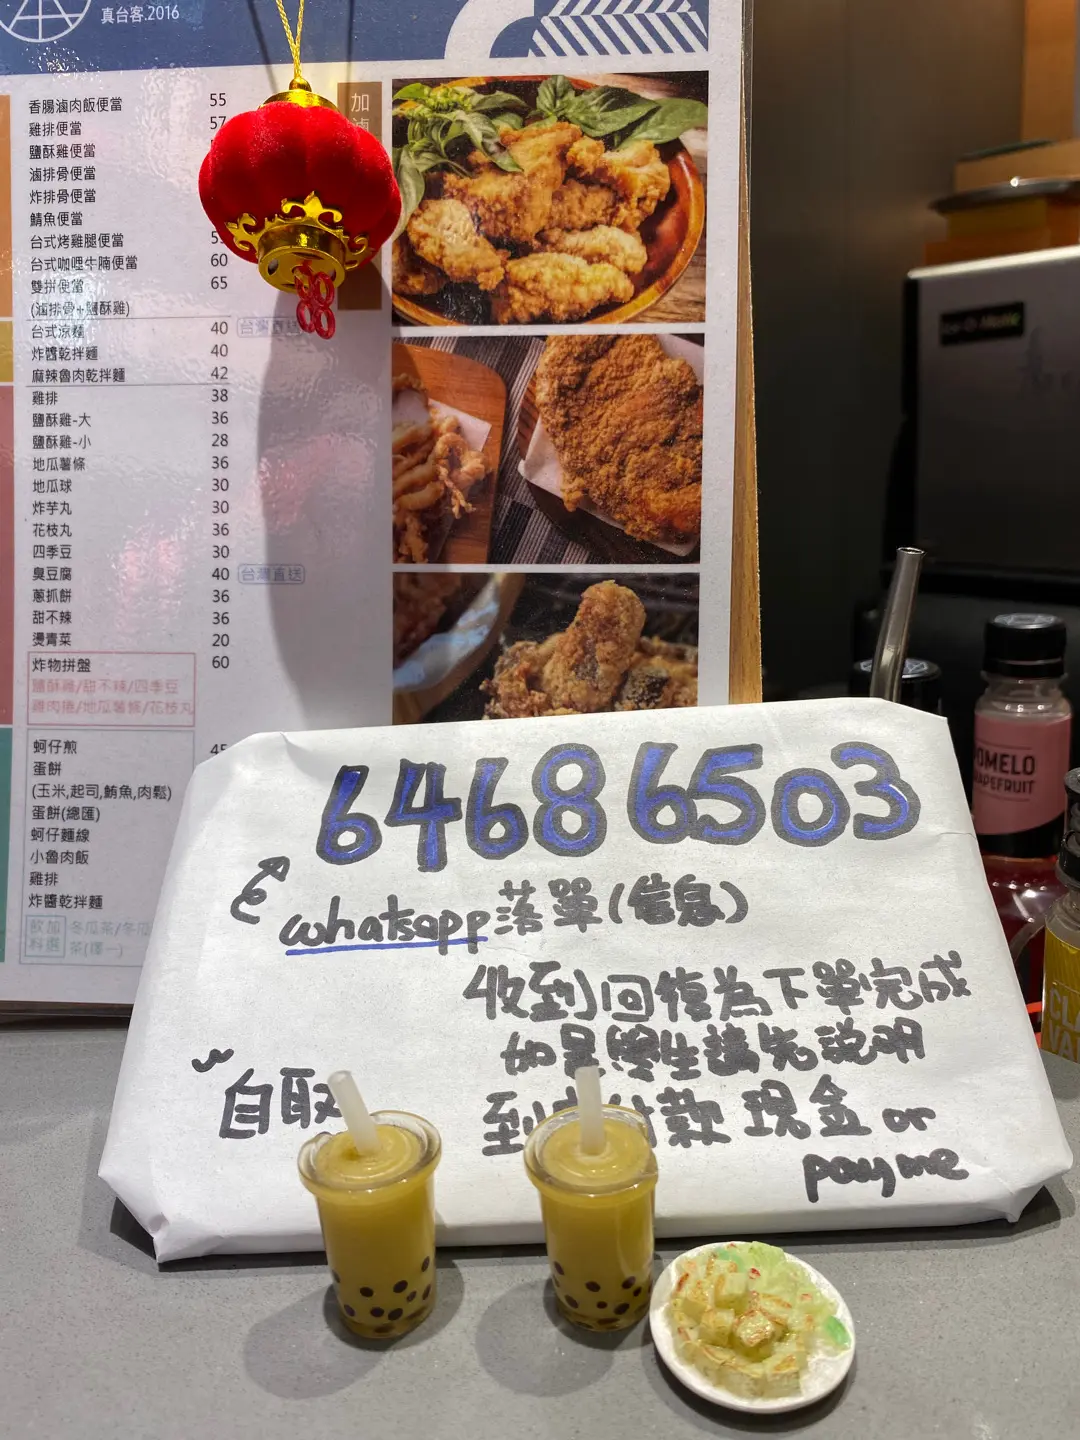 真台客.2016
香腸滷肉飯便當 55
雞排便當 57
鹽酥雞便當
滷排骨便當
炸排骨便當
鯖魚便當
台式烤雞腿便當
台式咖哩牛腩便當 60
雙拼便當 65
(滷排骨+鹽酥雞)
台式涼麵 40
炸醬乾拌麵 40
麻辣魯肉乾拌麵 42
雞排 38
鹽酥雞-大 36
鹽酥雞-小 28
地瓜薯條 36
地瓜球 30
炸芋丸 30
花枝丸 36
四季豆 30
臭豆腐 40 台灣直送
蔥抓餅 36
甜不辣 36
燙青菜 20
炸物拼盤 60
鹽酥雞/甜不辣/四季豆
雞肉捲/地瓜薯條/花枝丸
蚵仔煎
蛋餅
(玉米,起司,鮪魚,肉鬆)
蛋餅(總匯)
蚵仔麵線
小魯肉飯
雞排
炸醬乾拌麵
飲加 冬瓜茶/冬瓜
料選 茶(擇一)
加
64686503
whatsapp落單(信息)
收到回復為下單完成
如是學生請先說明
自取
到 付款 現金 or
payme
POMELO
GRAPEFRUIT